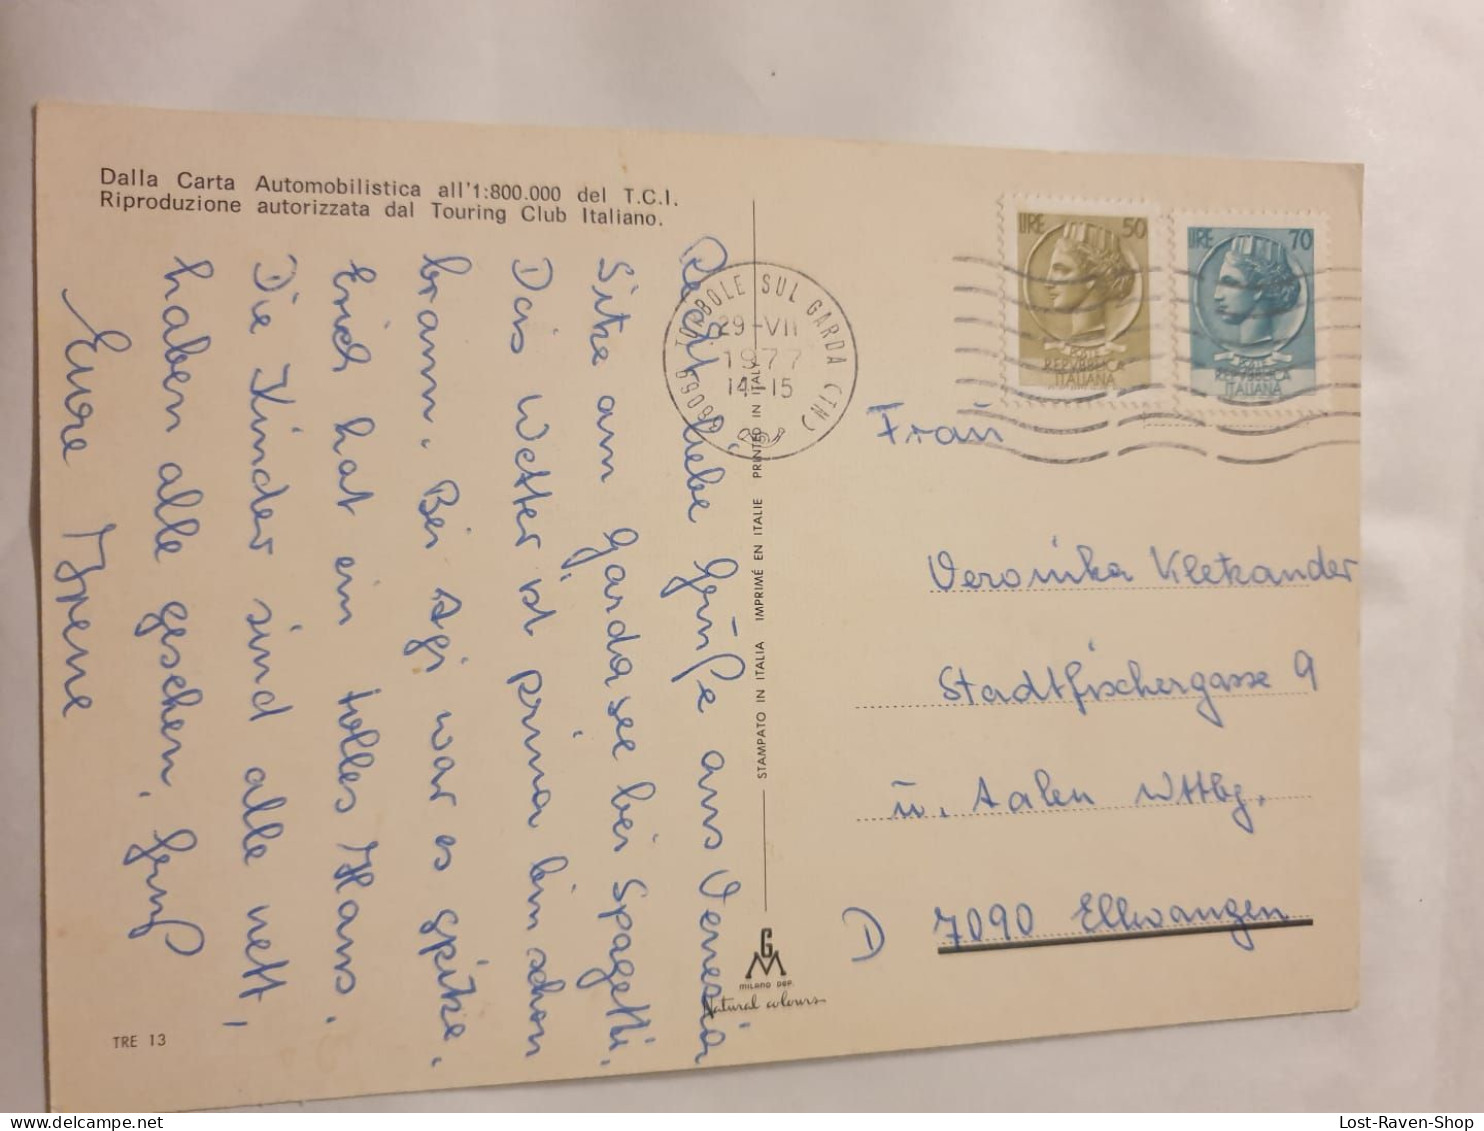 Dalla Carta Automobilistica all'1:800.000 del T.C.I.
Riproduzione autorizzata dal Touring Club Italiano.
Recht liebe Grüße aus Venesia
Sitze am Gardasee bei Spagetti.
Das Wetter ist prima bin schon
braun. Bei Agi war es spitze.
Erich hat ein tolles Haus.
Die Kinder sind alle nett,
haben alle gesehen. Gruß
Eure Irene
TRE 13
38069 TORBOLE SUL GARDA (TN)
29-VII
1977
14-15
STAMPATO IN ITALIA IMPRIMÉ EN ITALIE PRINTED IN ITALY
GM
MILANO DEP.
Natural colours
LIRE 50
POSTE
REPVBBLICA
ITALIANA
LIRE 70
POSTE
REPVBBLICA
ITALIANA
Frau
Veronika Kletzander
Stadtfischergasse 9
n. Aalen Wttbg.
D 7090 Ellwangen
Lost-Raven-Shop